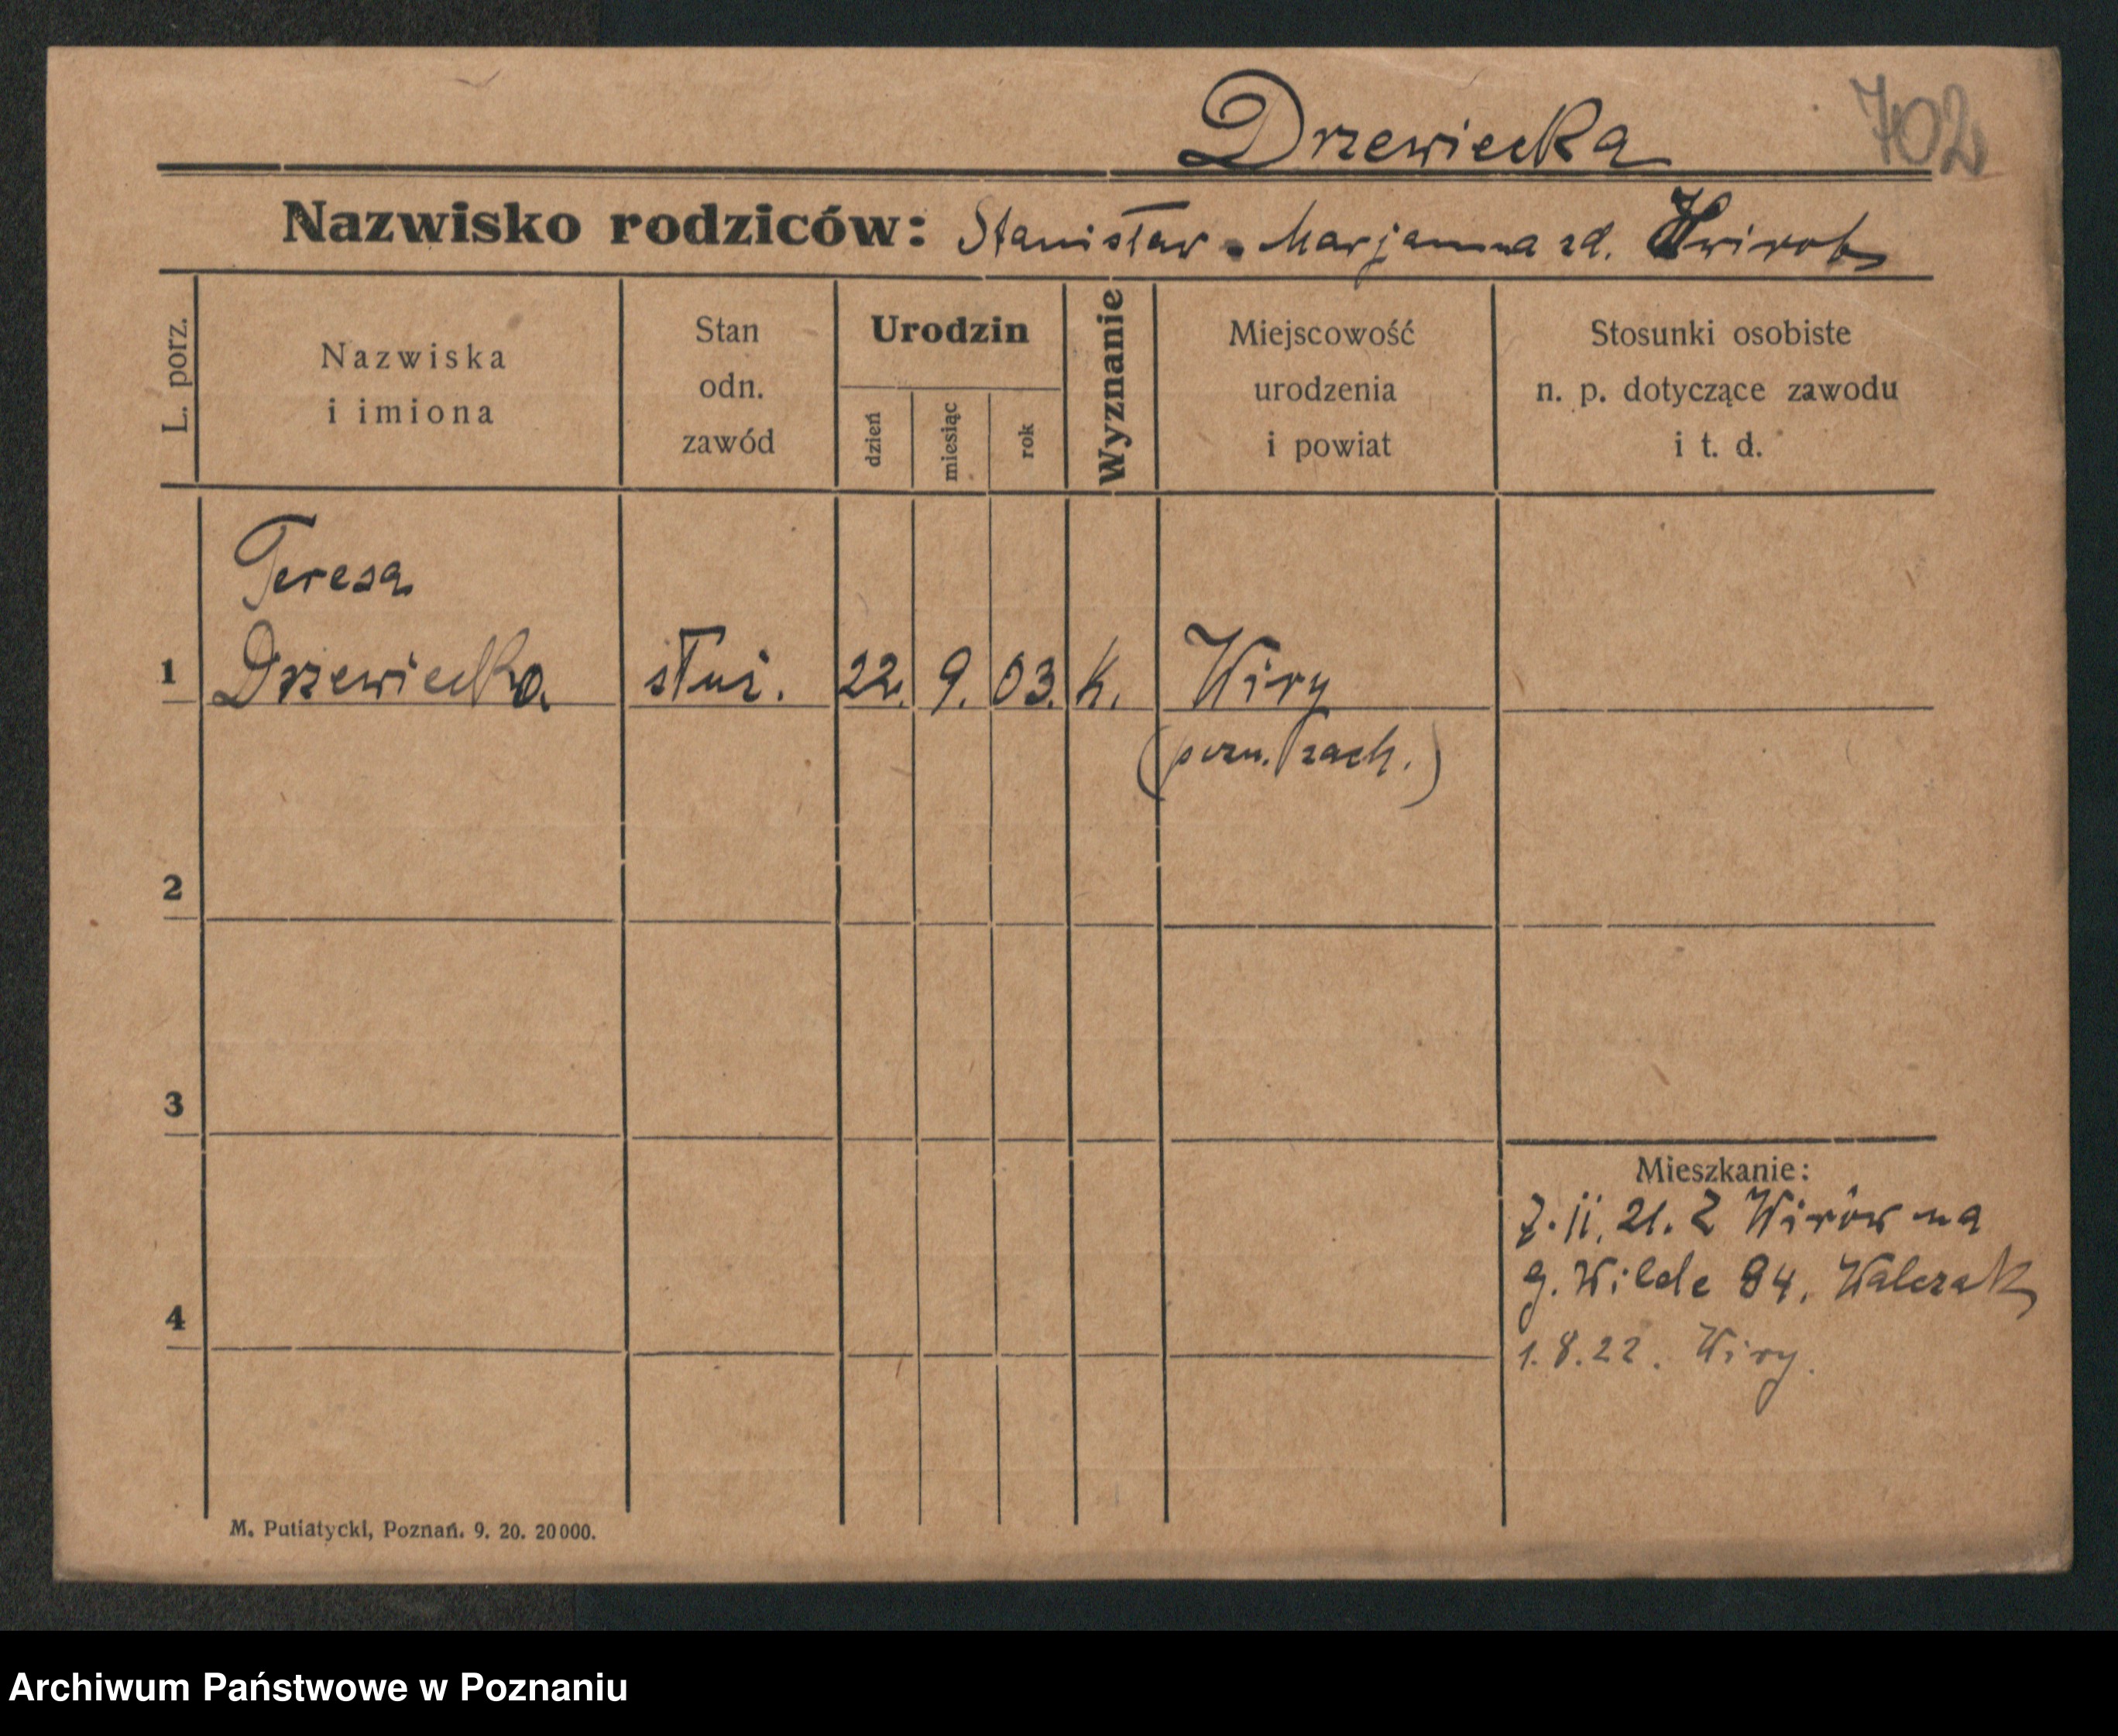 Drzewiecka 702
Nazwisko rodziców: Stanisław - Marjanna zd.
L. porz.
Nazwiska
i imiona
Stan
odn.
zawód
Urodzin
dzień
miesiąc
rok
Wyznanie
Miejscowość
urodzenia
i powiat
Stosunki osobiste
n. p. dotyczące zawodu
i t. d.
Teresa
1 Drzewiecka służ. 22. 9. 03. k. Wiry
(pozn. zach.)
2
3
Mieszkanie:
7. 11. 21. Z Wirów na
g. Wilde 84. Walczak
4
1. 8. 22. Wiry.
M. Putiatycki, Poznań. 9. 20. 20000.
Archiwum Państwowe w Poznaniu